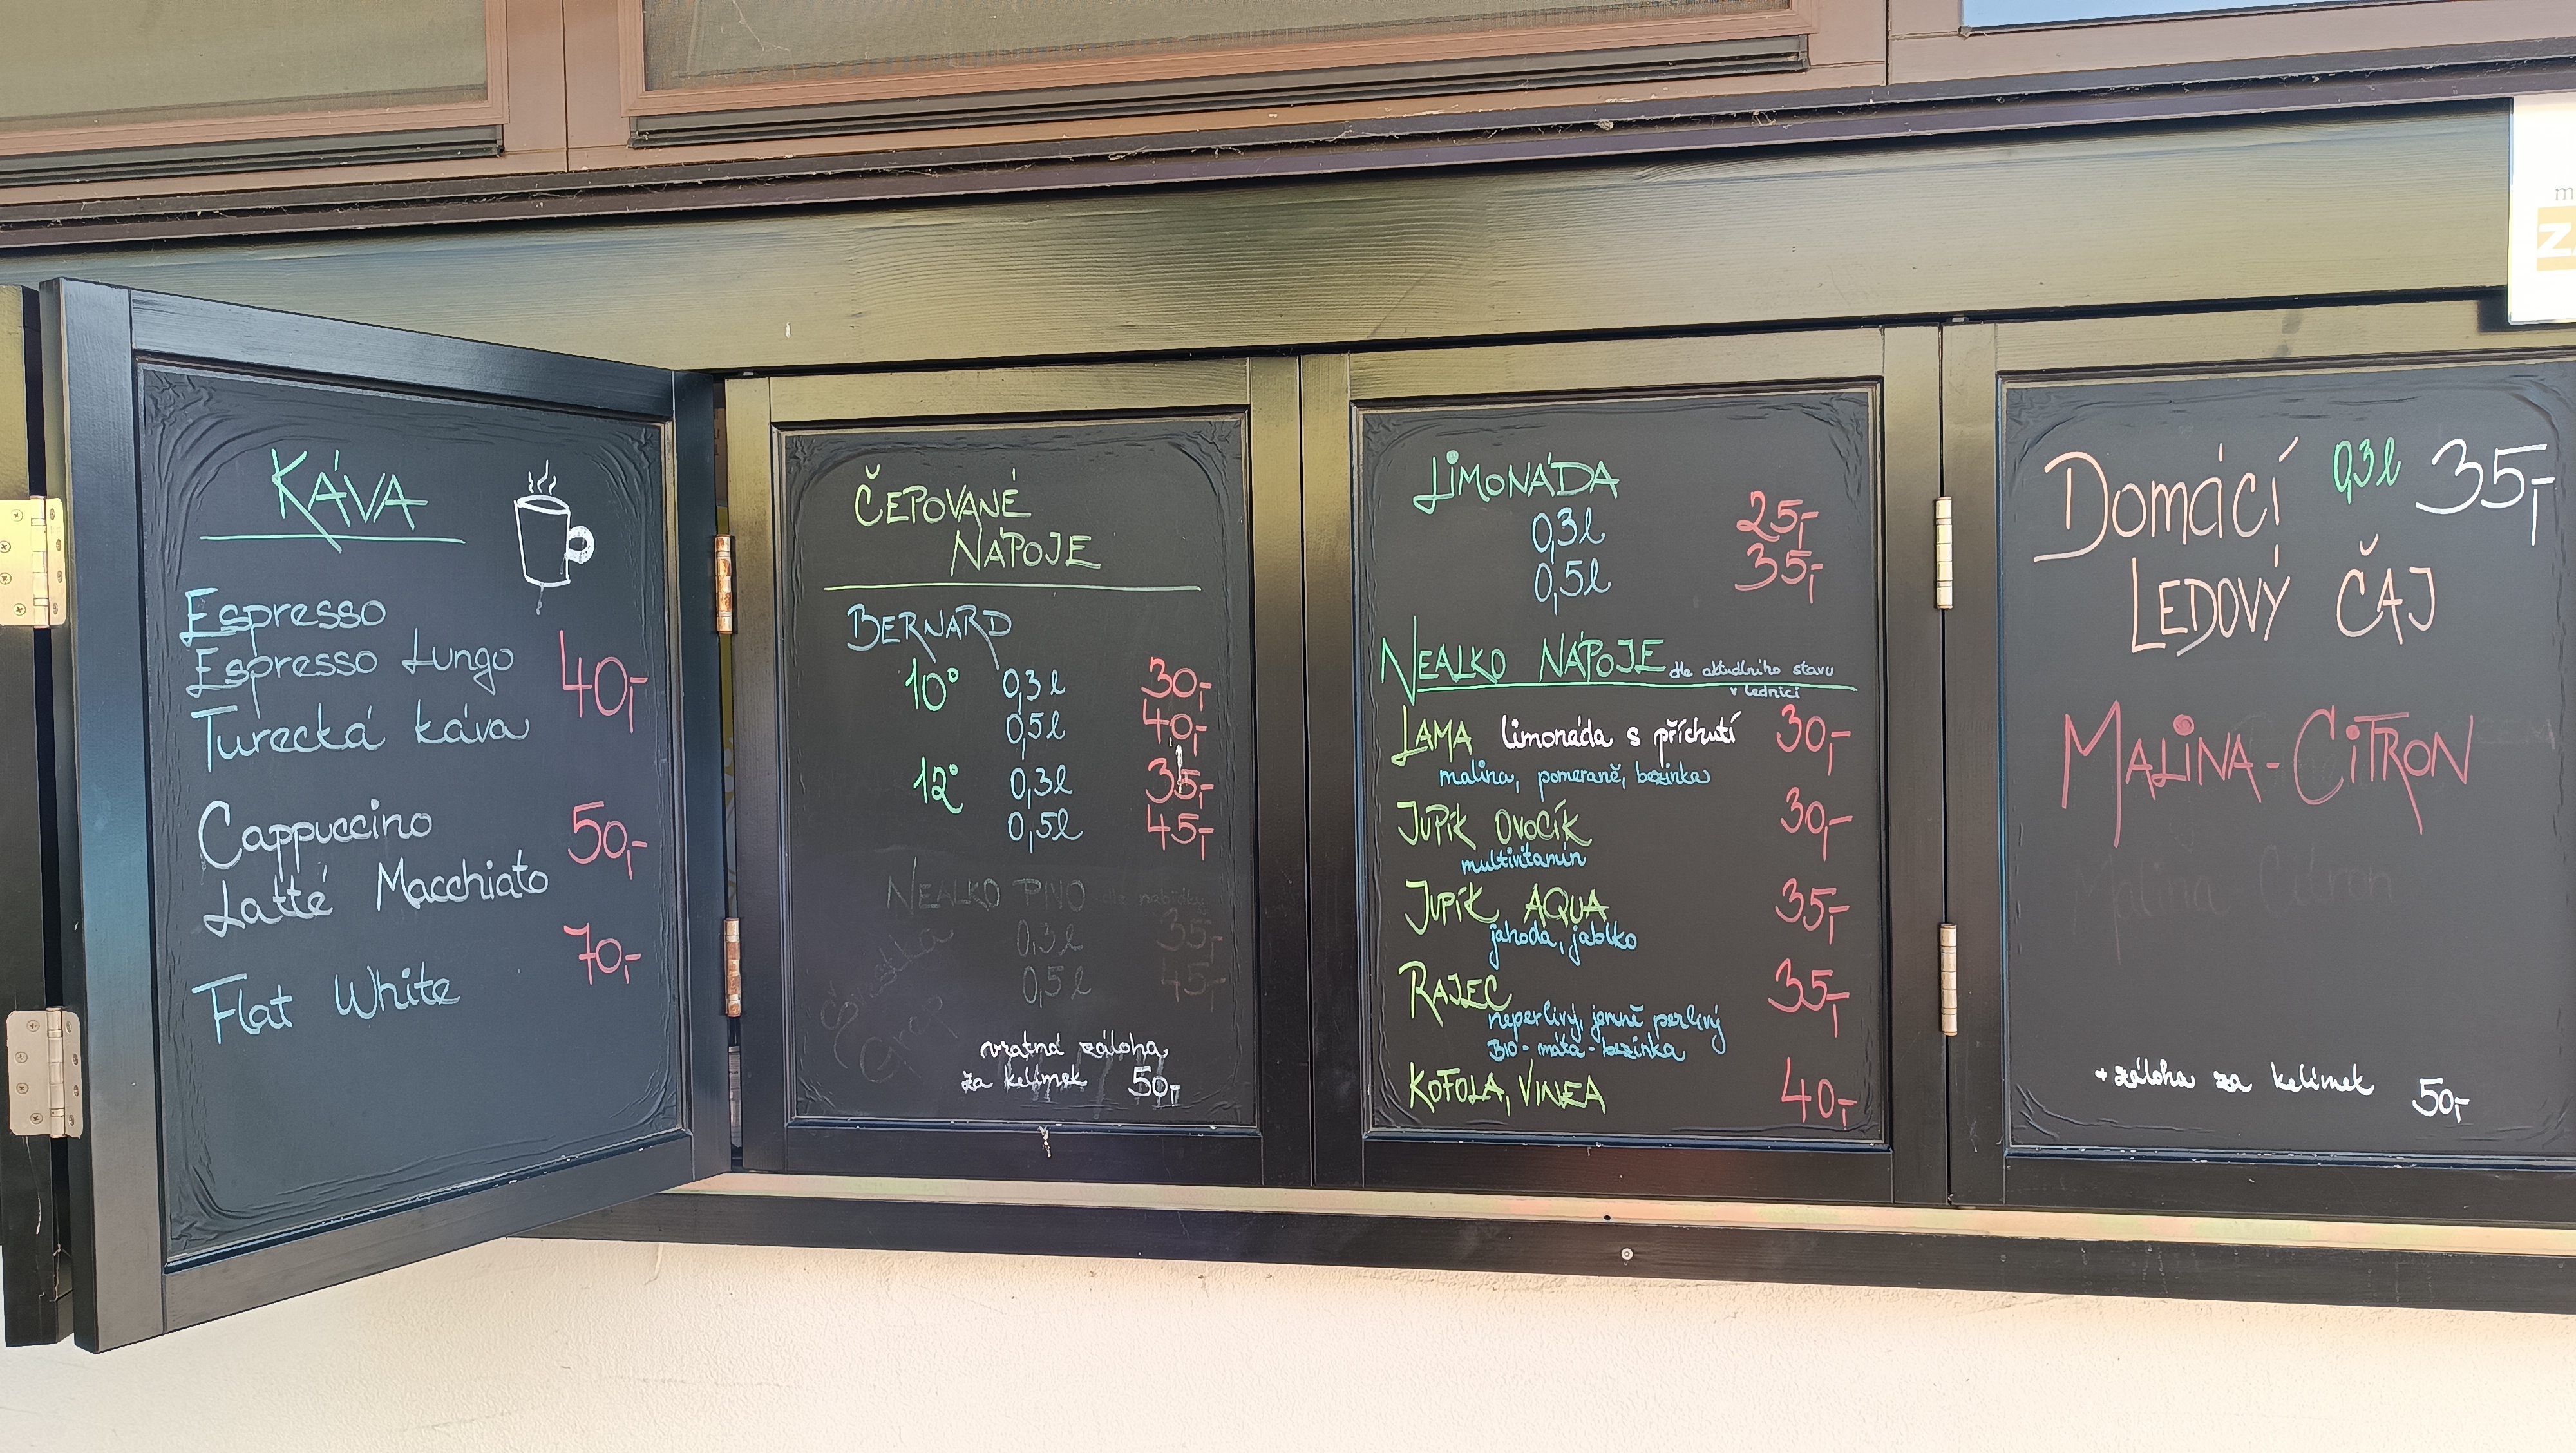 KÁVA
Espresso
Espresso Lungo
40,-
Turecká káva
Cappuccino 50,-
Latté Macchiato
70,-
Flat White
ČEPOVANÉ
NÁPOJE
BERNARD
10° 0,3l 30,-
0,5l 40,-
12° 0,3l 35,-
0,5l 45,-
NEALKO PIVO dle nabídky
0,3l 35,-
0,5l 45,-
vratná záloha
za kelímek 50,-
LIMONÁDA
0,3l 25,-
0,5l 35,-
NEALKO NÁPOJE dle aktuálního stavu
v lednici
LAMA limonáda s příchutí 30,-
malina, pomeranč, bezinka
JUPÍK OVOCÍK 30,-
multivitamín
JUPÍK AQUA 35,-
jahoda, jablko
RAJEC 35,-
neperlivý, jemně perlivý
BIO - máta - bezinka
KOFOLA, VINEA 40,-
DOMÁCÍ 0,3l 35,-
LEDOVÝ ČAJ
MALINA - CITRON
Malina Citron
+ záloha za kelímek 50,-